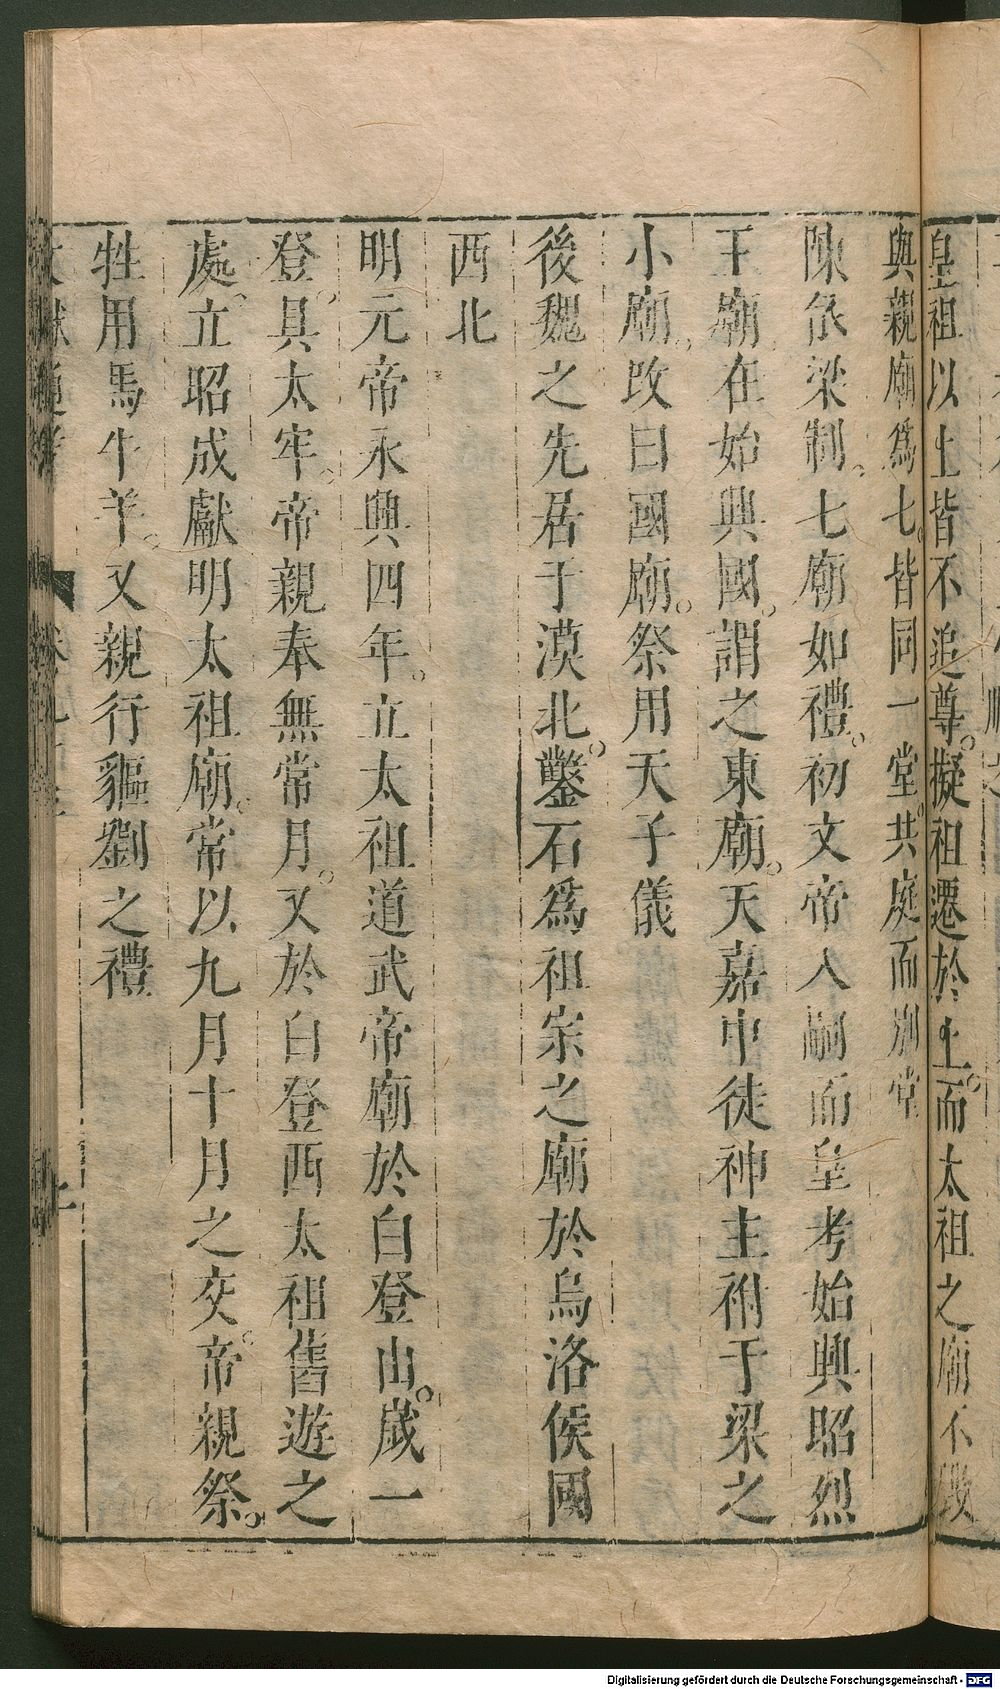 皇祖以上皆不追尊。擬祖遷於上。而太祖之廟不毀
與親廟爲七。皆同一堂。共庭而別堂
陳依梁制。七廟如禮。初文帝入嗣而皇考始興昭烈
王廟在始興國。謂之東廟。天嘉中徒神主祔于梁之
小廟。改曰國廟。祭用天子儀
後魏之先居于漠北。鑿石爲祖宗之廟於烏洛侯國
西北
明元帝永興四年。立太祖道武帝廟於白登山。歲一
登。具太牢。帝親奉無常月。又於白登西太祖舊遊之
處。立昭成獻明太祖廟。常以九月十月之交。帝親祭。
牲用馬牛羊。又親行貙劉之禮
Digitalisierung gefördert durch die Deutsche Forschungsgemeinschaft - DFG